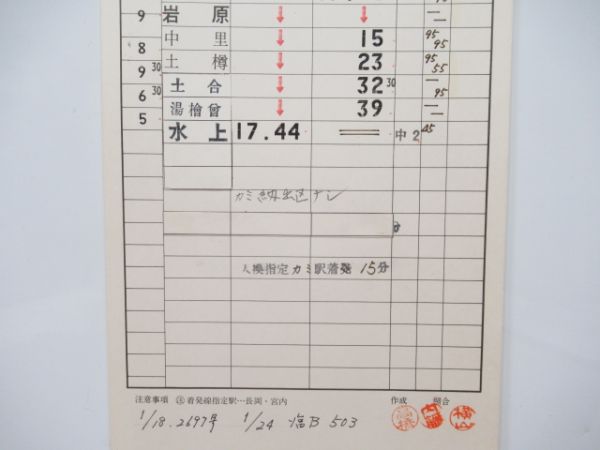 9 岩原 ↓ ↓ ==
中里 ↓ 15 95 95
8
土樽 ↓ 23 95 55
9 30
土合 ↓ 32 30 — 95
6 30
湯檜曾 ↓ 39 ==
5
水上 17.44 == 中2 45
カミ 出区ナシ
分
入換指定カミ駅着発 15分
注意事項 着発線指定駅…長岡・宮内 作成 照合
1/18.2697号 1/24 塩B 503